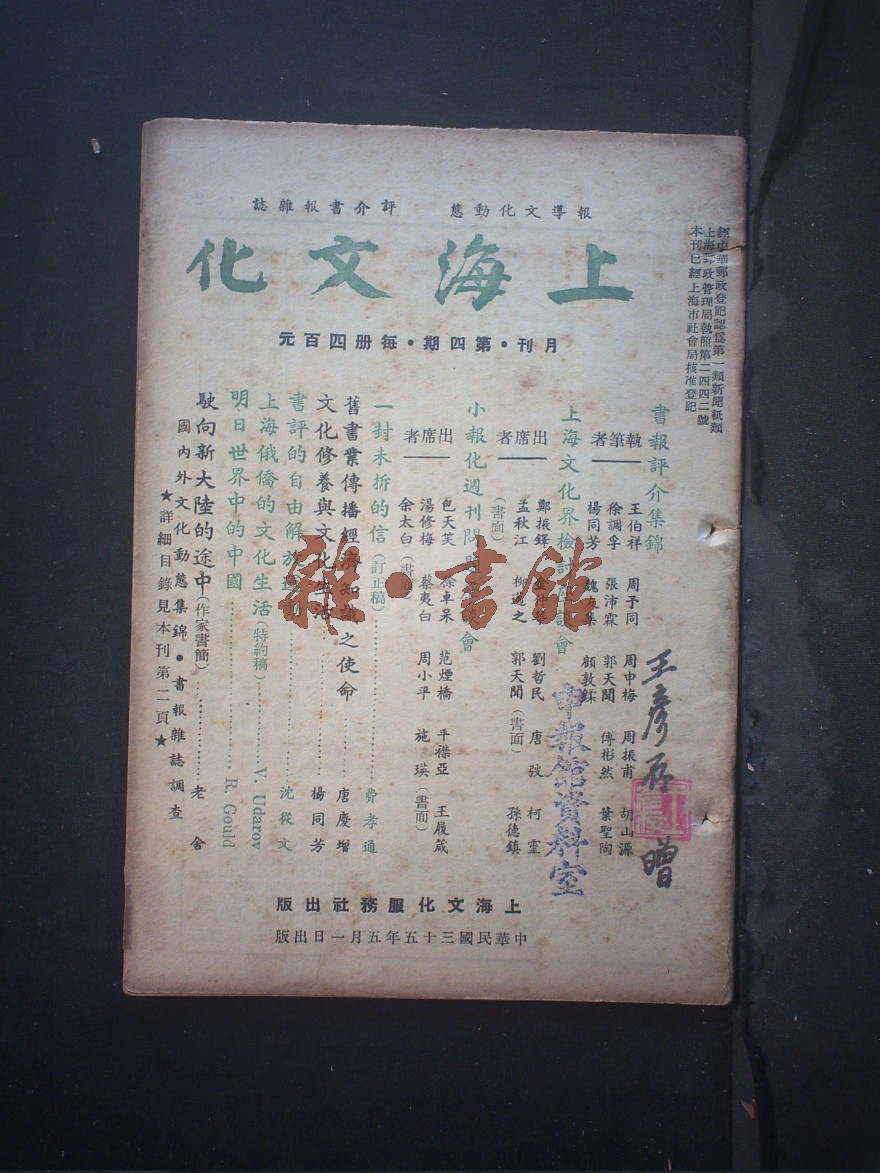 報導文化動態　評介書報雜誌
上海文化
月刊・第四期・每册四百元
經中華郵政登記認爲第一類新聞紙類
上海郵政管理局執照第二四四二號
本刊已經上海市社會局核准登記
書報評介集錦
執筆者
王伯祥　周予同　周申梅　周振甫　胡山源
徐調孚　張沛霖　郭天聞　傅彬然　葉聖陶
楊同芳　顧敦鍒
上海文化界檢討會
出席者
鄭振鐸　劉哲民　唐弢　柯靈
孟秋江　柳之　郭天聞（書面）　孫德鎮
（書面）
小報化週刊問會
出席者
包天笑　徐卓呆　范煙橋　平襟亞　王履箴
湯修梅　蔡夷白　周小平　施瑛（書面）
余太白（書面）
一封未拆的信（訂正稿）……費孝通
舊書業傳播經濟知識之使命……唐慶增
文化修養與文化生活……楊同芳
書評的自由解放運動……沈從文
上海俄僑的文化生活（特約稿）……V. Udarov
明日世界中的中國……R. Gould
駛向新大陸的途中（作家書簡）……老舍
國內外文化動態集錦・書報雜誌調查
★詳細目錄見本刊第二頁★
上海文化服務社出版
中華民國三十五年五月一日出版
王彥存贈
申報館資料室
雜・書館